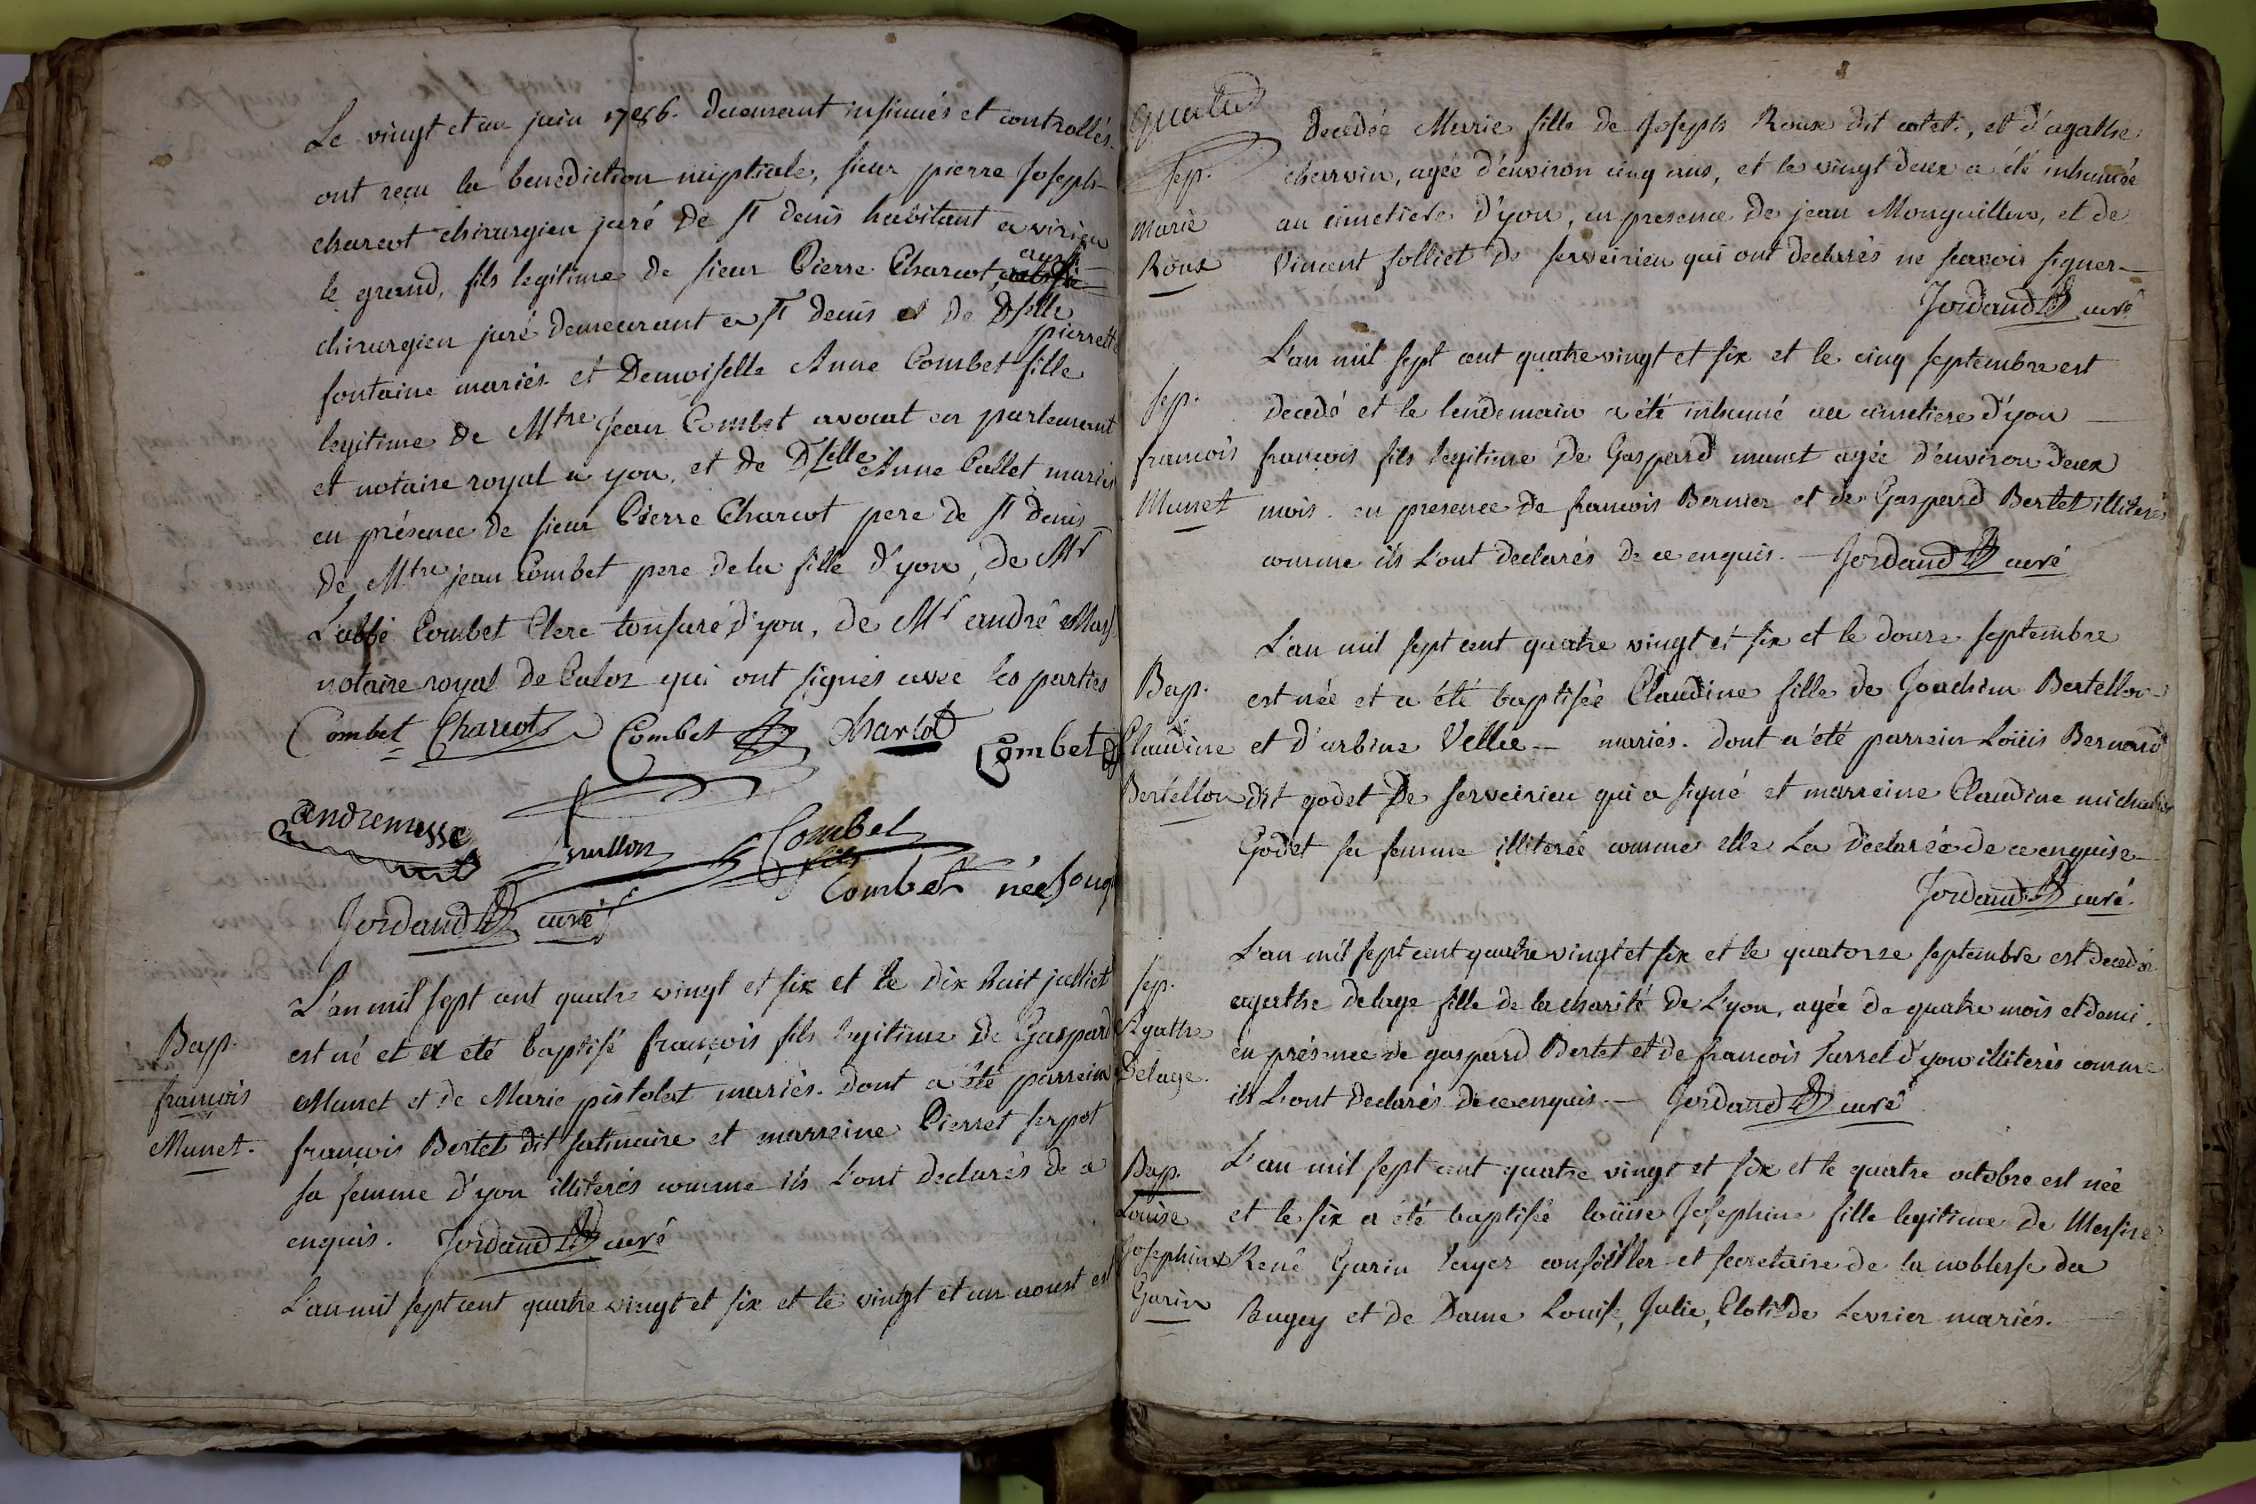 Le vingt et un juin 1786. duement insinués et controllés.
ont reçu la benediction nuptiale, sieur pierre Joseph
charcot chirurgien juré de st denis habitant a virieu
le grand, fils legitime de sieur Pierre Charcot, aussi
chirurgien juré demeurant a st denis et de Dselle pierrette
fontaine mariés et Demoiselle Anne Combet fille
legitime de Mtre Jean Combet avocat en parlement
et notaire royal a yon, et de Dselle Anne Callet mariés
en présence de sieur Pierre Charcot pere de st denis
de Mtre jean Combet pere de la fille d'yon, de Mr
L'abbé Combet Clerc tonsuré d'yon, de Mr andré Mass
notaire royal de Culoz qui ont signés avec les parties
Combet Charcot Combet Charcot Combet
andremasse Combet fils
Combet née
Jordand curé
Bap.
françois
Munet.
L'an mil sept cent quatre vingt et six et le dix huit juillet
est né et a eté baptisé françois fils legitime de Gaspard
Munet et de Marie pistolet mariés. dont a été parrein
françois Bertet dit salinaire et marreine Pierret serpot
sa femme d'yon illiterés comme ils L'ont declarés de ce
enquis. Jordand curé
L'an mil sept cent quatre vingt et six et le vingt et un aoust est
Sep.
Marie
Roux
Decedée Marie fille de Joseph Roux dit cotet, et d'agathe
charvin, agée d'environ cinq ans, et le vingt deux a été inhumée
au cimetiere d'yon, en presence de jean Monguillen, et de
Vincent folliet de serveirieu qui ont declarés ne scavoir signer
Jordand curé
Sep.
francois
Munet
L'an mil sept cent quatre vingt et six et le cinq septembre est
decedé et le lendemain a été inhumé au cimetiere d'yon
françois fils legitime de Gaspard munet agée d'environ deux
mois. en presence de francois Bernier et de Gaspard Bertet illiterés
comme ils L'ont declarés de ce enquis. Jordand curé
Bap.
Claudine
Bertellon
L'an mil sept cent quatre vingt et six et le douze septembre
est née et a été baptisée Claudine fille de Joachim Bertellon
et d'urbine Vellee mariés. dont a été parrein Loüis Bernard
dit godet De serveirieu qui a signé et marreine Claudine
Godet sa femme illiterée comme elle La declarée de ce enquise
Jordand curé.
Sep.
Agathe
Delage.
L'an mil sept cent quatre vingt et six et le quatorze septembre est decedée
agathe delage fille de la charité de Lyon, agée de quatre mois et demi.
en présence de gaspard Bertet et de francois Sarret d'yon illiterés comme
ils L'ont declarés de ce enquis. Jordand curé
Bap.
Louise
Josephine
Garin
L'an mil sept cent quatre vingt et six et le quatre octobre est née
et le six a été baptisée loüise Josephine fille legitime de Messire
René Garin conseiller et secretaire de la noblesse du
Bugey et de Dame Louise, Julie, Clotilde Levrier mariés.